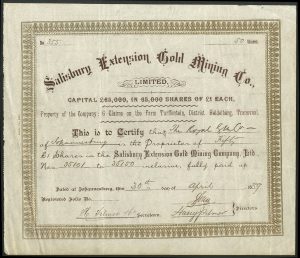 No 355 50 Shares
Salisbury Extension Gold Mining Co.,
LIMITED.
CAPITAL £65,000, IN 65,000 SHARES OF £1 EACH.
Property of the Company: 6 Claims on the Farm Turffontein, District, Heidelberg, Transvaal.
This is to Certify that The Royal
of Johannesburg, the Proprietor of Fifty
£1 Shares in the Salisbury Extension Gold Mining Company, Ltd.,
Nos 35101 to 35150 inclusive, fully paid up
Dated at Johannesburg, the 30th day April 1889
Registered Folio No.
Secretary. Directors